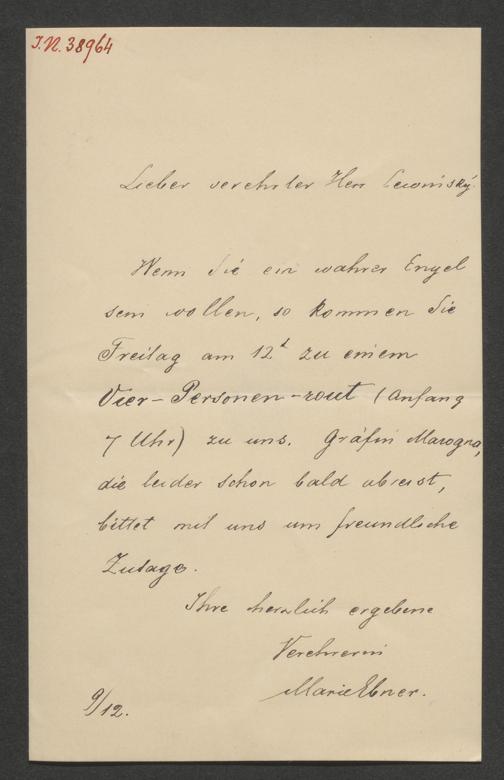 I.N. 38964
Lieber verehrter Herr Lewinský.
Wenn Sie ein wahrer Engel
sein wollen, so kommen Sie
Freitag am 12t zu einem
Vier-Personen-rout (Anfang
7 Uhr) zu uns. Gräfin Marogna,
die leider schon bald abreist,
bittet mit uns um freundliche
Zusage.
Ihre herzlich ergebene
Verehrerin
Marie Ebner.
9/12.